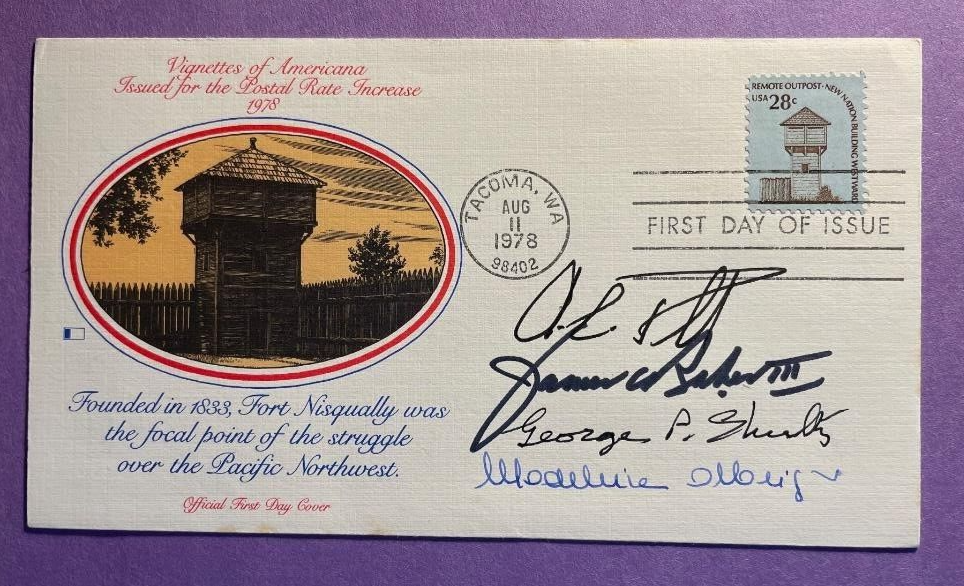 Vignettes of Americana
Issued for the Postal Rate Increase
1978
REMOTE OUTPOST · NEW NATION BUILDING WESTWARD
USA 28c
TACOMA, WA
AUG
11
1978
98402
FIRST DAY OF ISSUE
James A Baker III
George P. Shultz
Madeleine Albright
Founded in 1833, Fort Nisqually was
the focal point of the struggle
over the Pacific Northwest.
Official First Day Cover